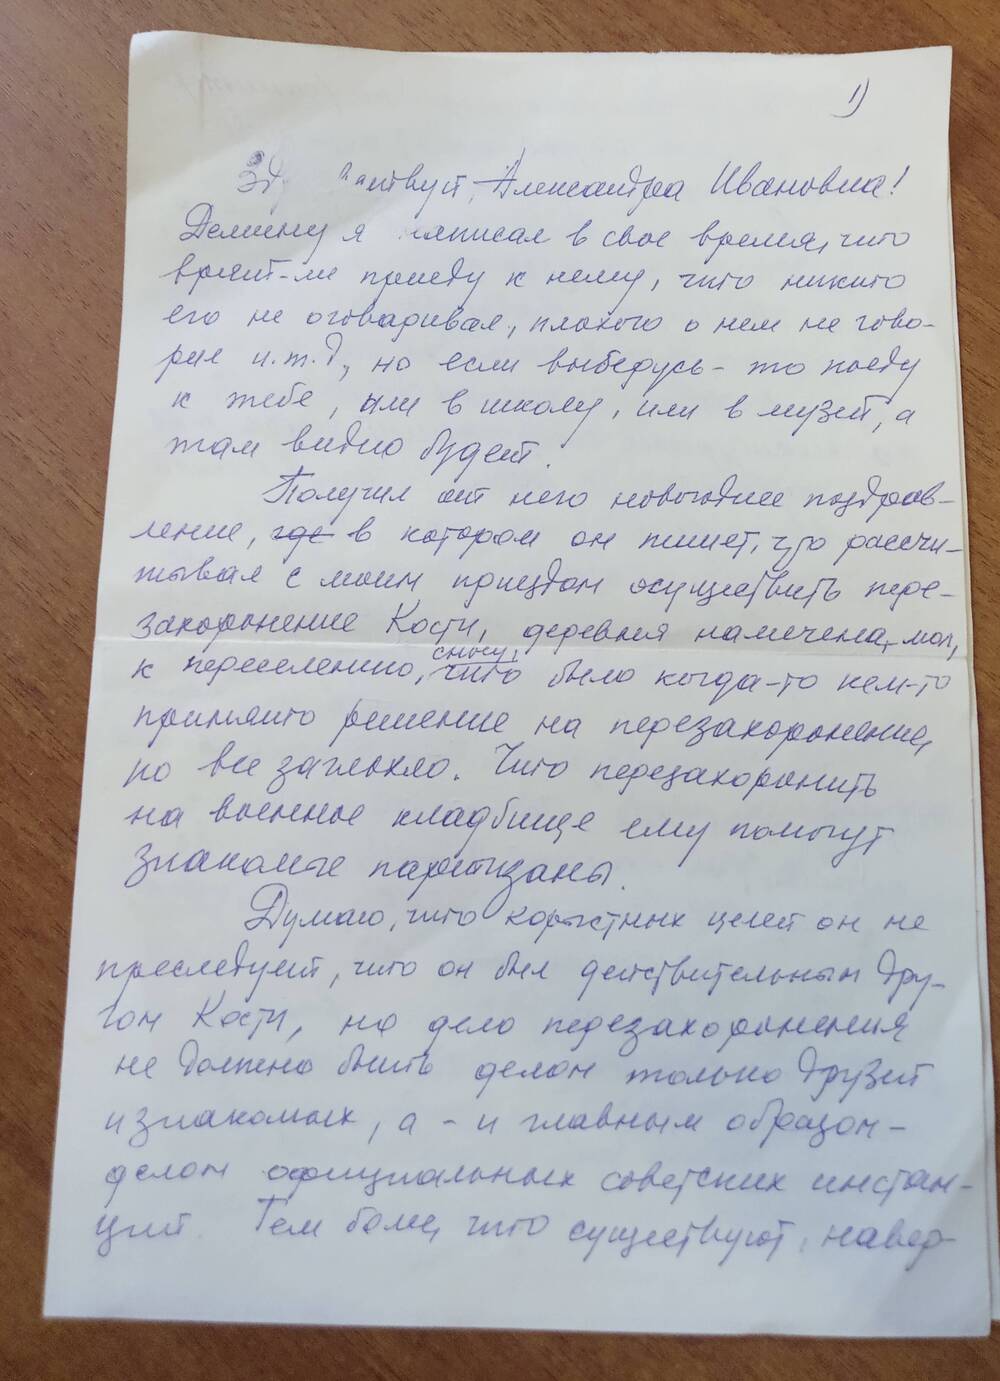 1)
Здравствуй, Александра Ивановна!
Демину я написал в свое время, что
врят-ли приеду к нему, что никто
его не оговаривал, плохого о нем не гово-
рил и.т.д, но если выберусь - то поеду
к тебе, или в школу, или в музей, а
там видно будет.
Получил от него новогоднее поздрав-
ление, где в котором он пишет, что рассчи-
тывал с моим приездом осуществить пере-
захоронение Кости, деревня намечена, мол,
сносу,
к переселению, что было когда-то кем-то
принято решение на перезахоронение,
но все заглохло. Что перезахоронить
на военное кладбище ему помогут
знакомые партизаны.
Думаю, что корыстных целей он не
преследует, что он был действительным дру-
гом Кости, но дело перезахоронения
не должно быть делом только друзей
и знакомых, а - и главным образом -
делом официальных советских инстан-
ций. Тем более, что существуют, навер-